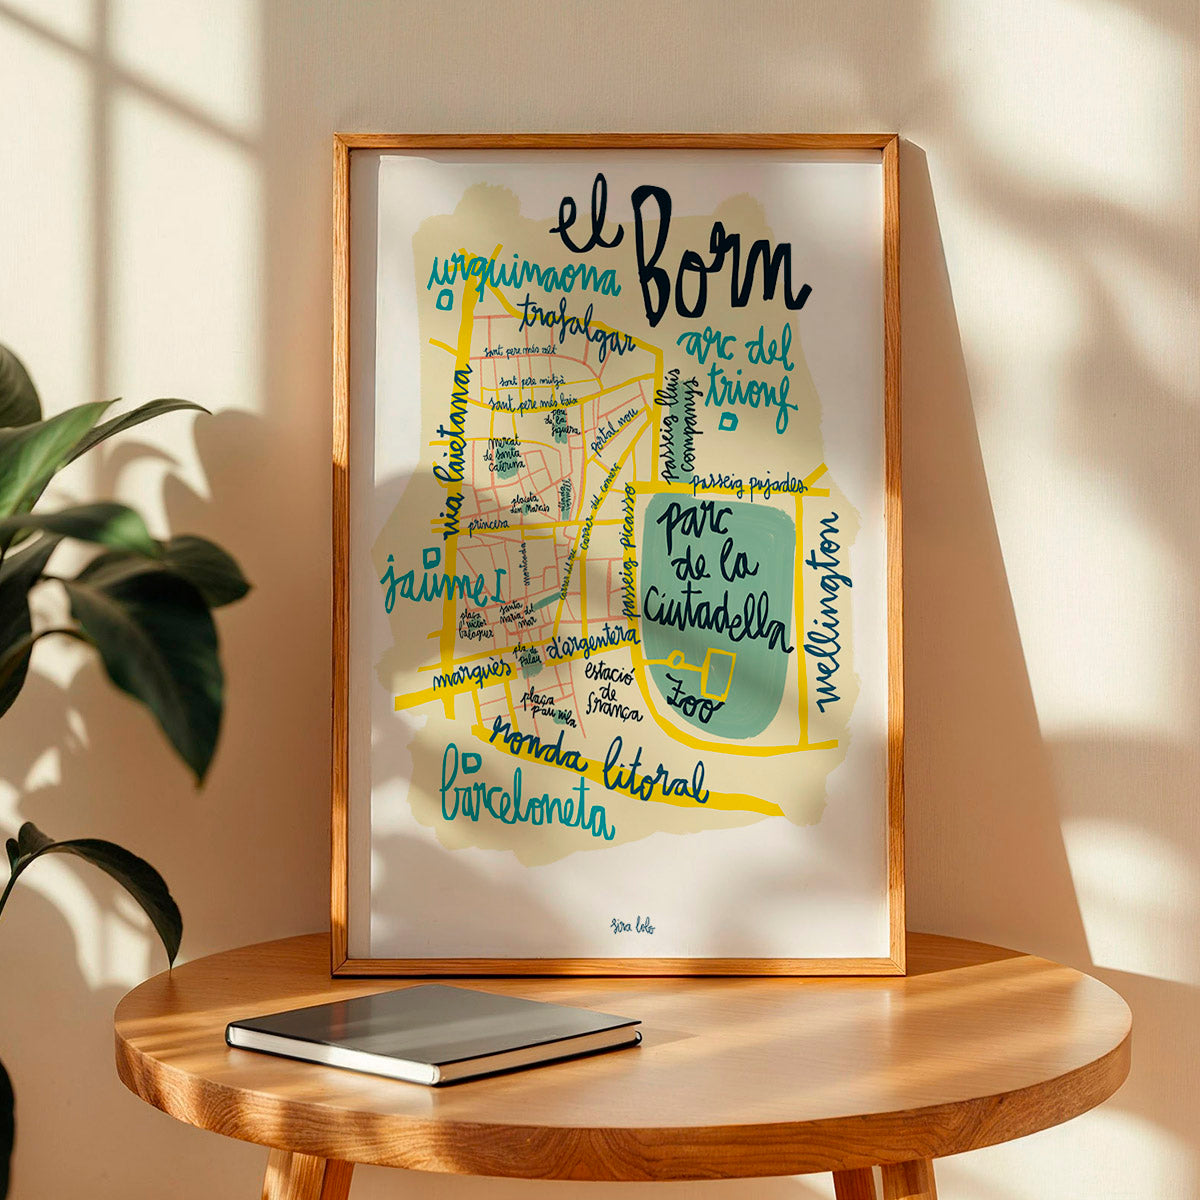 el Born
urquinaona
trafalgar
arc del
triomf
sant pere més alt
sant pere mitjà
sant pere més baix
pou
de la
figuera
portal nou
passeig lluís
companys
via laietana
mercat
de santa
caterina
passeig pujades
placeta
d'en Marcús
carrer del comerç
princesa
passeig picasso
parc
de la
Ciutadella
wellington
jaume I
montcada
carrer del rec
plaça
víctor
balaguer
santa
maria del
mar
marquès d'argentera
pla de
Palau
estació
de
frança
zoo
plaça
pau vila
ronda litoral
barceloneta
sira lobo